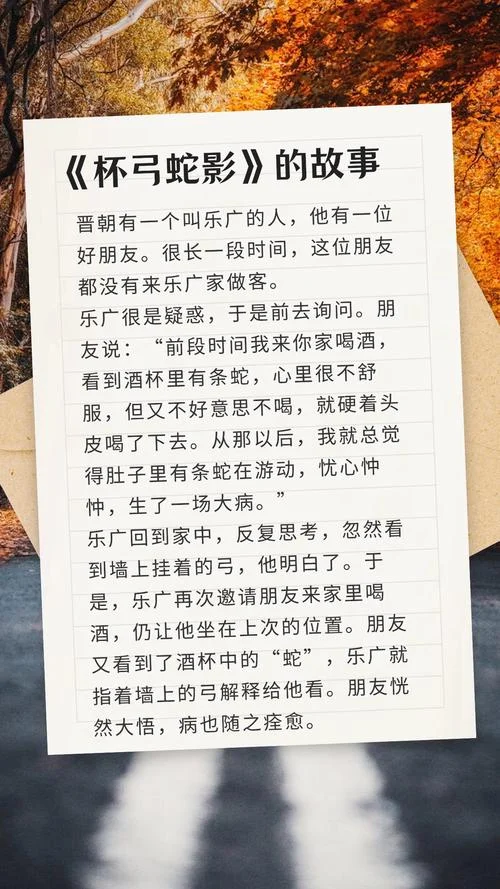 《杯弓蛇影》的故事
晋朝有一个叫乐广的人，他有一位
好朋友。很长一段时间，这位朋友
都没有来乐广家做客。
乐广很是疑惑，于是前去询问。朋
友说：“前段时间我来你家喝酒，
看到酒杯里有条蛇，心里很不舒
服，但又不好意思不喝，就硬着头
皮喝了下去。从那以后，我就总觉
得肚子里有条蛇在游动，忧心忡
忡，生了一场大病。”
乐广回到家中，反复思考，忽然看
到墙上挂着的弓，他明白了。于
是，乐广再次邀请朋友来家里喝
酒，仍让他坐在上次的位置。朋友
又看到了酒杯中的“蛇”，乐广就
指着墙上的弓解释给他看。朋友恍
然大悟，病也随之痊愈。